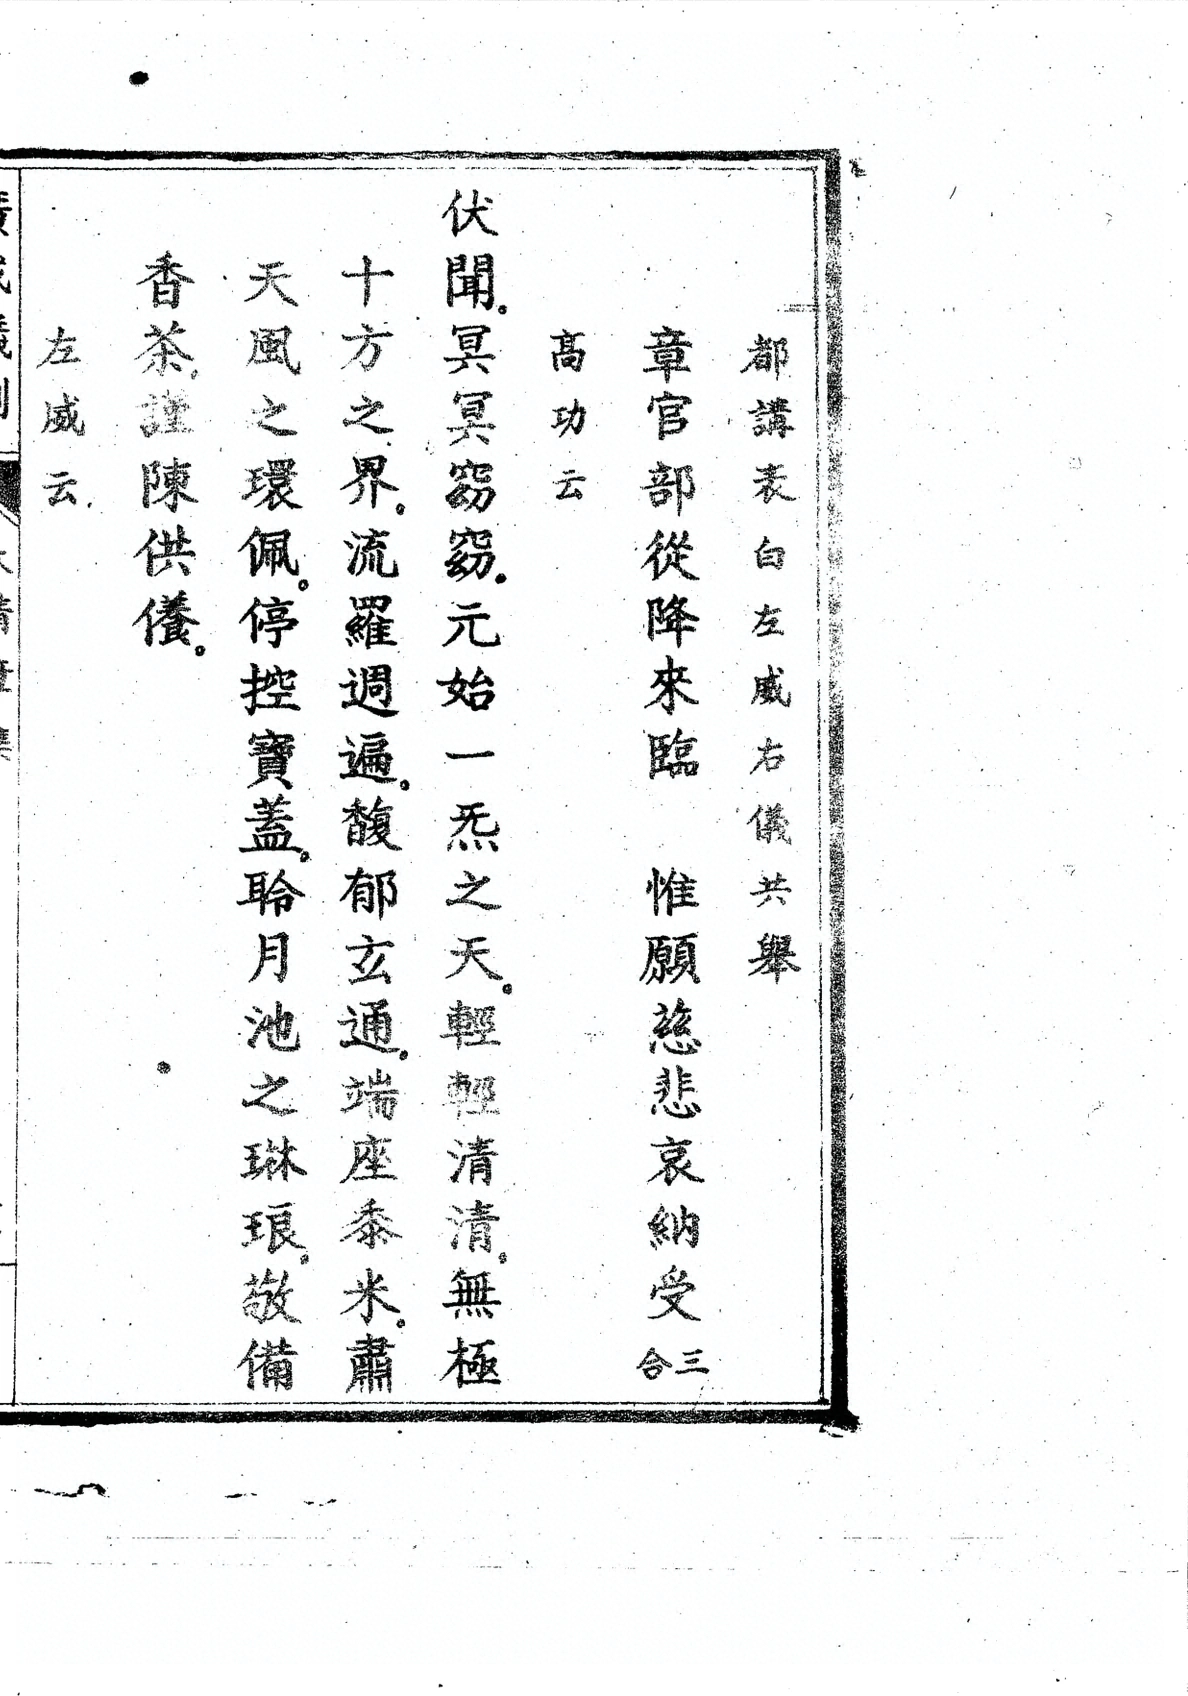 都講表白左威右儀共舉
章官部從降來臨　惟願慈悲哀納受三合
高功云
伏聞。冥冥窈窈。元始一炁之天。輕輕清清。無極
十方之界。流羅週遍。馥郁玄通。端座黍米。肅
天風之環佩。停控寶蓋。聆月池之琳琅。敬備
香茶。謹陳供儀。
左威云